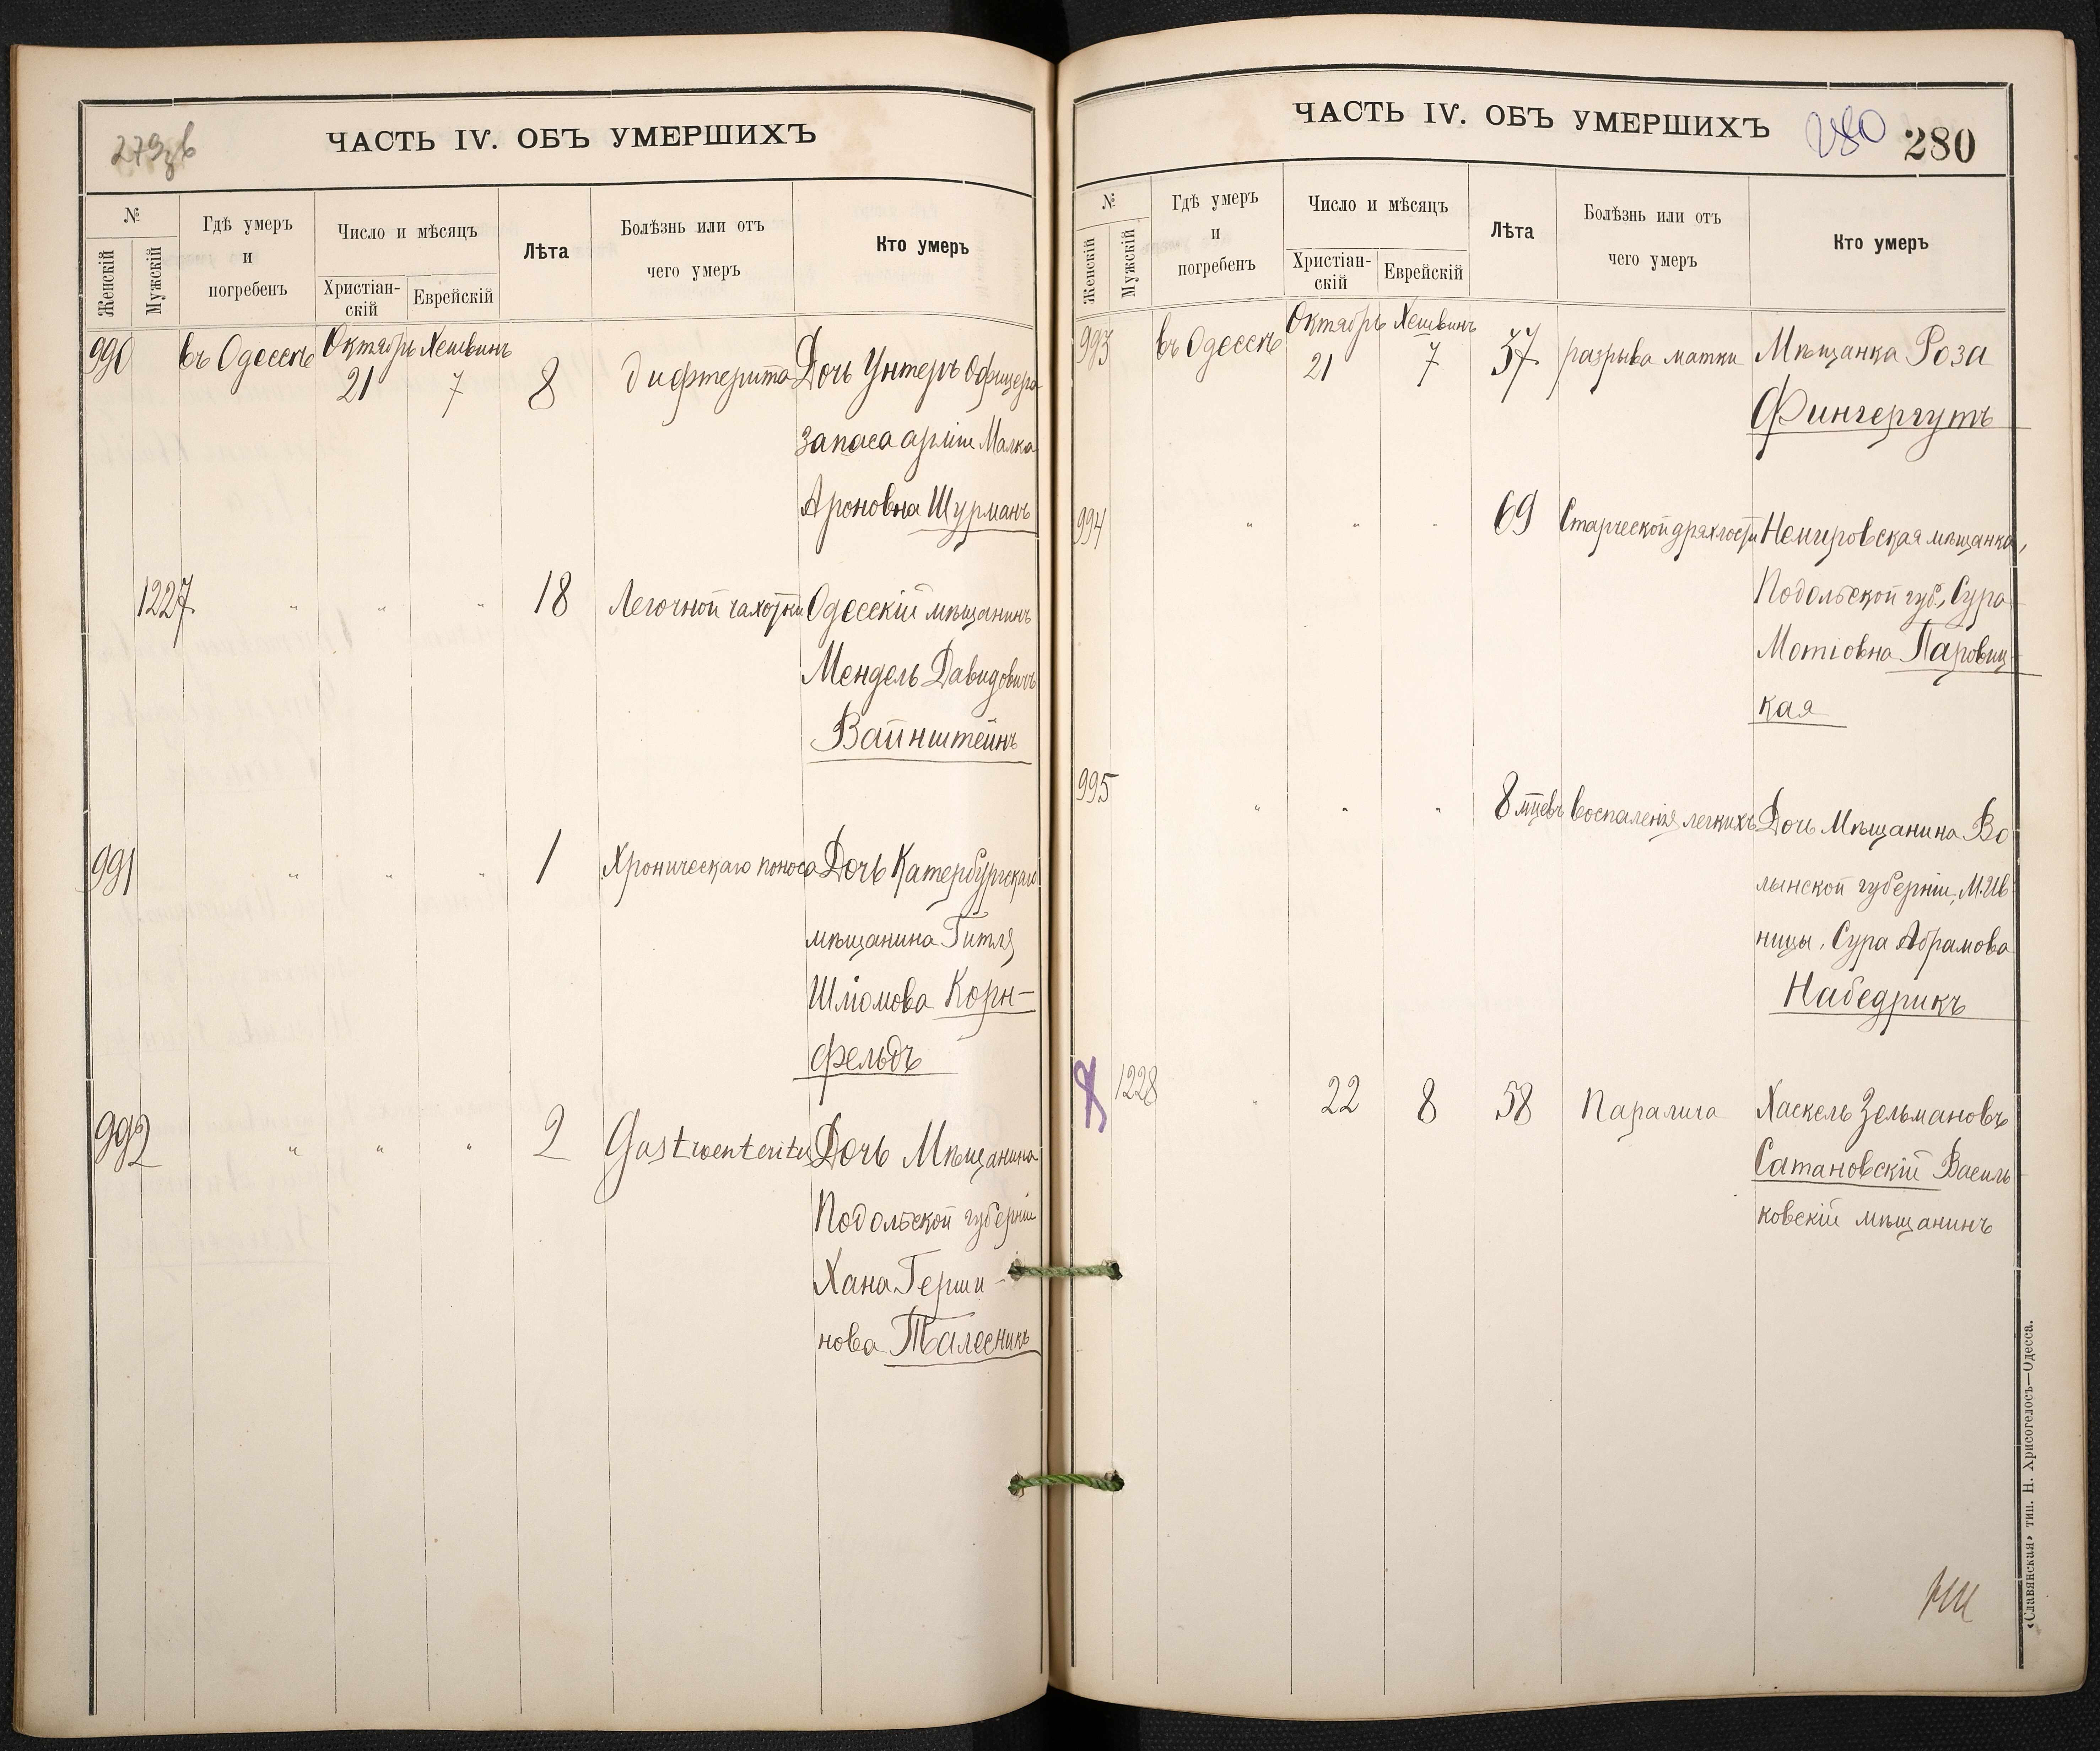 279зв
ЧАСТЬ IV. ОБЪ УМЕРШИХЪ
№
Женскій
Мужскій
Гдѣ умеръ
и
погребенъ
Число и мѣсяцъ
Христіан-
скій
Еврейскій
Лѣта
Болѣзнь или отъ
чего умеръ
Кто умеръ
990 въ Одессѣ Октябрь 21 Хешвинъ 7 8 дифтерита Дочь Унтеръ Офицера
запаса арміи Малка
Ароновна Шурманъ
1227 " " " 18 Легочной чахотки Одесскій мѣщанинъ
Мендель Давидовичъ
Вайнштейнъ
991 " " " 1 Хроническаго поноса Дочь Катербургскаго
мѣщанина Гитля
Шліомова Корн-
фельдъ
992 " " " 2 Gastroenteritis Дочь Мѣщанина
Подольской губерніи
Хана Герши-
нова Талесникъ
ЧАСТЬ IV. ОБЪ УМЕРШИХЪ
280
280
№
Женскій
Мужскій
Гдѣ умеръ
и
погребенъ
Число и мѣсяцъ
Христіан-
скій
Еврейскій
Лѣта
Болѣзнь или отъ
чего умеръ
Кто умеръ
993 въ Одессѣ Октябрь 21 Хешвинъ 7 37 разрыва матки Мѣщанка Роза
Фингергутъ
994 " " " 69 Старческой дряхлости Немировская мѣщанка,
Подольской губ., Сура
Мотіовна Паровиц-
кая
995 " " " 8 мѣцевъ воспаленія легкихъ Дочь Мѣщанина Во
лынской губерніи, М. Ив
ницы, Сура Абрамова
Набедрикъ
1228 " 22 8 58 Паралича Хаскель Зельмановъ
Сатановскій Василь
ковскій мѣщанинъ
«Славянская» тип. Н. Хрисогелосъ—Одесса.